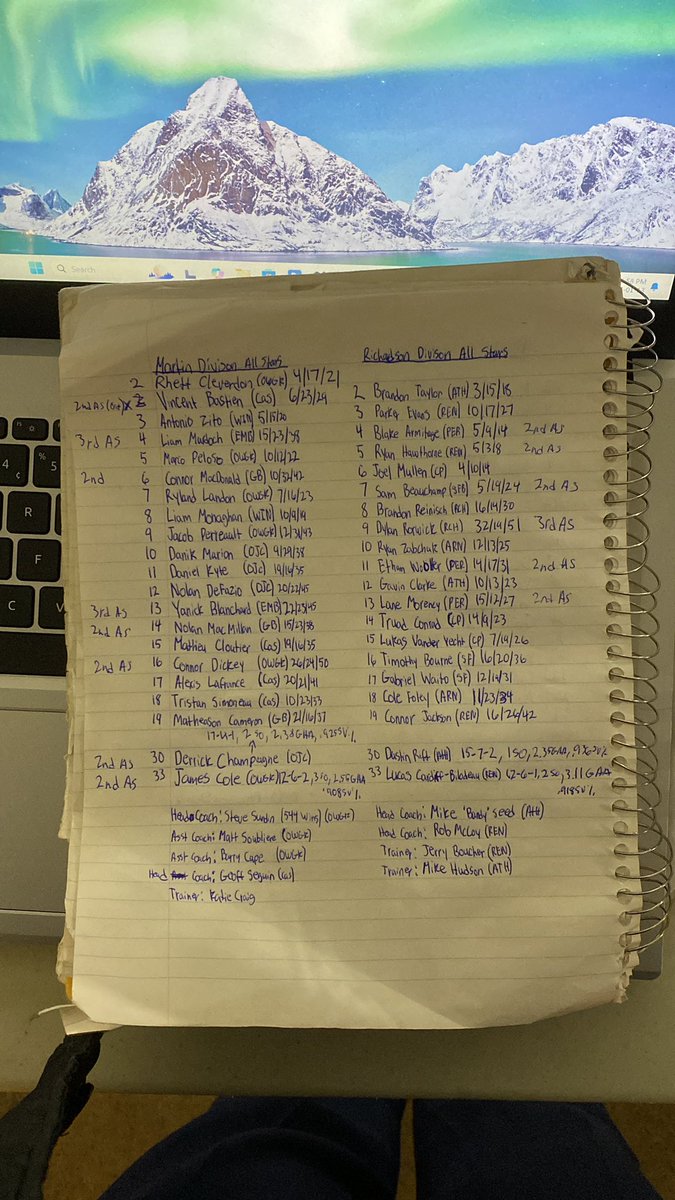 Search
Martin Divison All Stars
2 Rhett Cleverdon (OWGK) 4/17/21
2nd AS Vincent Bastien (Cas) 6/23/29
3 Antonio Zito (WIN) 5/15/20
3rd AS 4 Liam Murdoch (EMB) 15/23/38
5 Marco Peloso (OWGK) 10/12/22
2nd 6 Connor MacDonald (GB) 10/32/42
7 Ryland Landon (OWGK) 7/16/23
8 Liam Monaghan (WIN) 10/9/19
9 Jacob Perreault (OWGK) 12/31/43
10 Danik Marion (OJC) 9/29/38
11 Daniel Kyte (OJC) 19/16/35
12 Nolan DeFazio (OJC) 20/22/45
3rd AS 13 Yanick Blanchard (EMB) 22/23/45
2nd AS 14 Nolan MacMillan (GB) 15/23/38
15 Mathieu Cloutier (Cas) 19/16/35
2nd AS 16 Connor Dickey (OWGK) 26/24/50
17 Alexis Lafrance (Cas) 20/21/41
18 Tristan Simoneau (Cas) 10/23/33
19 Matheason Cameron (GB) 21/16/37
2nd AS 30 Derrick Champagne (OJC)
2nd AS 33 James Cole (OWGK) 12-6-2, 3 SO,
Head Coach: Steve Sundin (544 Wins) (OWGK)
Asst Coach: Matt Soubliere (OWGK)
Asst Coach: Barry Cape (OWGK)
Head Coach: Geoff Seguin (Cas)
Trainer: Katie Craig
Richardson Divison All Stars
2 Brandon Taylor (ATH) 3/15/18
3 Parker Evans (REN) 10/17/27
4 Blake Armitage (PER) 5/9/14 2nd AS
5 Ryan Hawthorne (REN) 5/3/8 2nd AS
6 Joel Mullen (CP) 4/10/14
7 Sam Beauchamp (SFB) 5/19/24 2nd AS
8 Brandon Reinisch (RCH) 16/14/30
9 Dylan Renwick (RCH) 32/19/51 3rd AS
10 Ryan Zubchuk (ARN) 12/13/25
11 Ethan Wobller (PER) 14/17/31 2nd AS
12 Gavin Clarke (ATH) 10/13/23
13 Lane Moreney (PER) 15/12/27 2nd AS
14 Truad Conrad (CP) 14/9/23
15 Lukas Vander Vecht (CP) 7/19/26
16 Timothy Bourne (SF) 16/20/36
17 Gabriel Waito (SF) 12/19/31
18 Cole Foley (ARN) 11/23/34
19 Connor Jackson (REN) 16/26/42
30 Dustin Rift (Ath) 15-7-2, 1 SO, 2.35 GAA,
33 Lucas (REN) 12-6-1, 2 SO, 3.11 GAA
.918 SV%
Head Coach: Mike "Bandy" Seed (Ath)
Head Coach: Rob McCoy (REN)
Trainer: Jerry Boucher (REN)
Trainer: Mike Hudson (ATH)
4
5
R
D
F
C
V